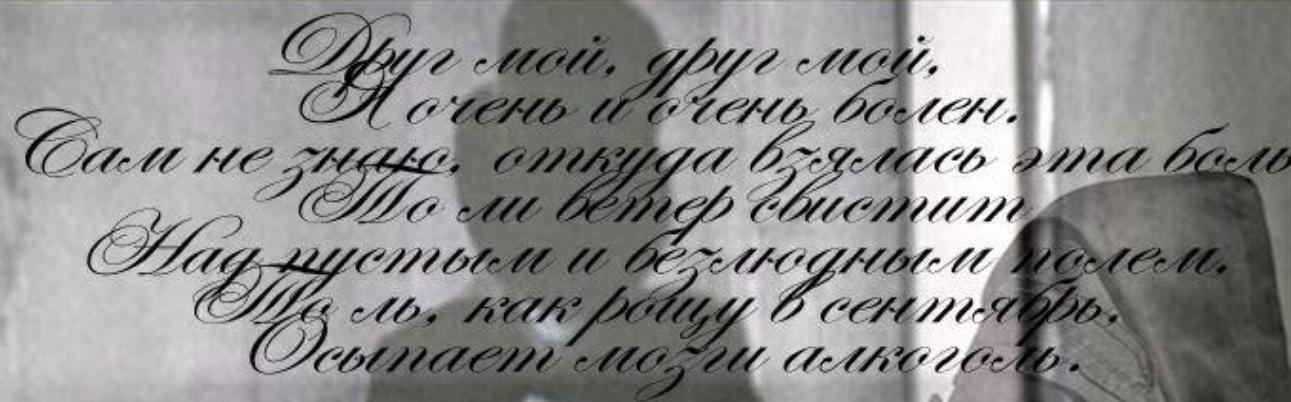 Друг мой, друг мой,
Я очень и очень болен.
Сам не знаю, откуда взялась эта боль
То ли ветер свистит
Над пустым и безлюдным полем,
То ль, как рощу в сентябрь,
Осыпает мозги алкоголь.